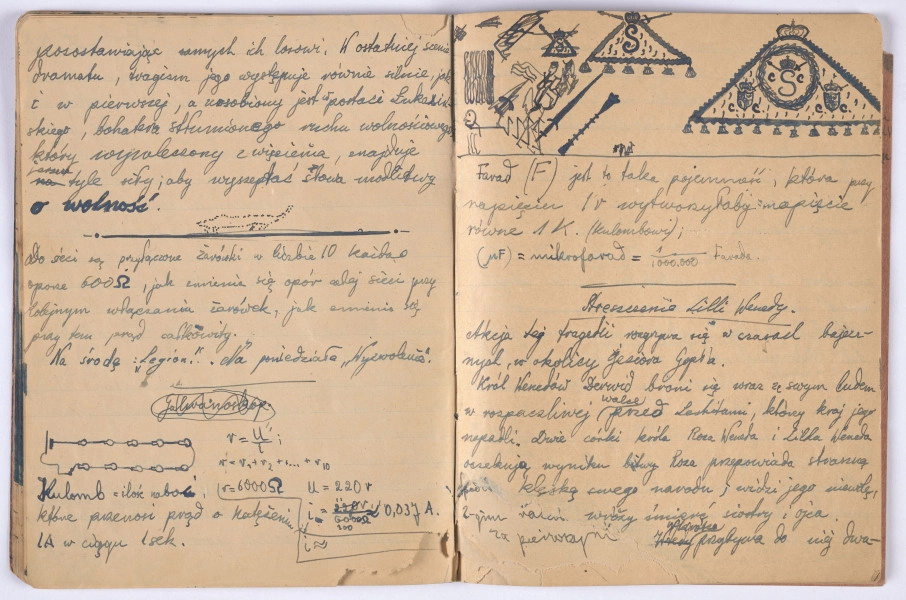 pozostawiając samych ich losowi. W ostatniej scenie
dramatu, tragizm jego występuje równie silnie, jak
i w pierwszej, a uosobiony jest w postaci Łukasiń-
skiego, bohatera stłumionego ruchu wolnościowego
który wypuszczony z więzienia, znajduje
tyle siły, aby wyszeptać słowa modlitwy
o wolność".
Do sieci są przyłączone żarówki w liczbie 10 każda o
oporze 600Ω, jak zmienia się opór całej sieci przy
kolejnym włączaniu żarówek, jak zmienia się
przy tem prąd całkowity.
Na środę: "Legion". Na poniedziałek "Wyzwolenie".
Galwanoskop.
r = U/i ;
r = r₁ + r₂ + ... + r₁₀
Kulomb = ilość
r = 6000Ω
U = 220 V
które przenosi prąd o natężeniu
i = 220V/6000Ω ≈ 0,037 A.
300
1A w ciągu 1 sek.
i ≈
S
S
c S c
c c c c
Farad (F) jest to taka pojemność, która przy
napięciu 1 V wytworzyłaby napięcie
równe 1 K. (kulombowi);
(μF) = mikrofarad = 1/1000.000 Farada.
Streszczenie Lilli Wenedy.
Akcja tej tragedii rozgrywa się w czasach bajecz-
nych, w okolicy jeziora Gopła.
Król Wenedów Derwid broni się wraz ze swym ludem
walce
w rozpaczliwej przed Lechitami, którzy kraj jego
napadli. Dwie córki króla Roza Weneda i Lilla Weneda
oczekują wyniku bitwy. Roza przepowiada straszną
klęskę swego narodu i widzi jego niewolę,
wróży śmierć siostry i ojca.
Za pierwszym
przybywa do niej dwu-